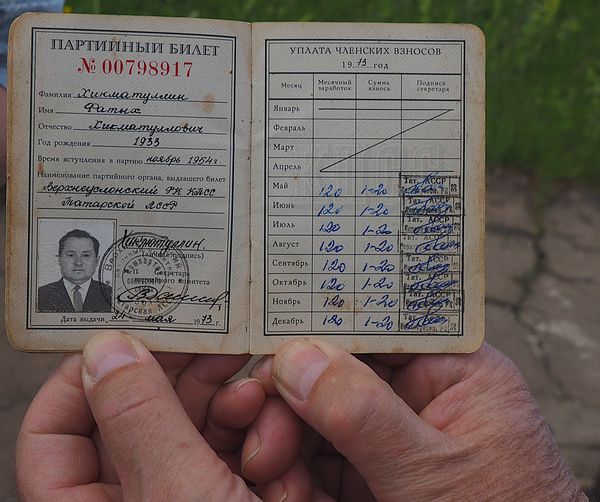 ПАРТИЙНЫЙ БИЛЕТ
№ 00798917
Фамилия Хикматуллин
Имя Фатых
Отчество Хикматуллович
Год рождения 1933
Время вступления в партию ноябрь 1954 г
Наименование партийного органа, выдавшего билет
Верхнеуслонский РК КПСС
Татарской АССР
Хикматуллин
(личная подпись)
Секретарь
комитета
Дата выдачи 24 мая 1973 г.
УПЛАТА ЧЛЕНСКИХ ВЗНОСОВ
1973 год
Месяц Месячный заработок Сумма взноса Подпись секретаря
Январь
Февраль
Март
Апрель
Май 120 1-20 Тат. АССР
Июнь 120 1-20 Тат. АССР
Июль 120 1-20 Тат. АССР
Август 120 1-20 Тат. АССР
Сентябрь 120 1-20 Тат. АССР
Октябрь 120 1-20 Тат. АССР
Ноябрь 120 1-20 Тат. АССР
Декабрь 120 1-20